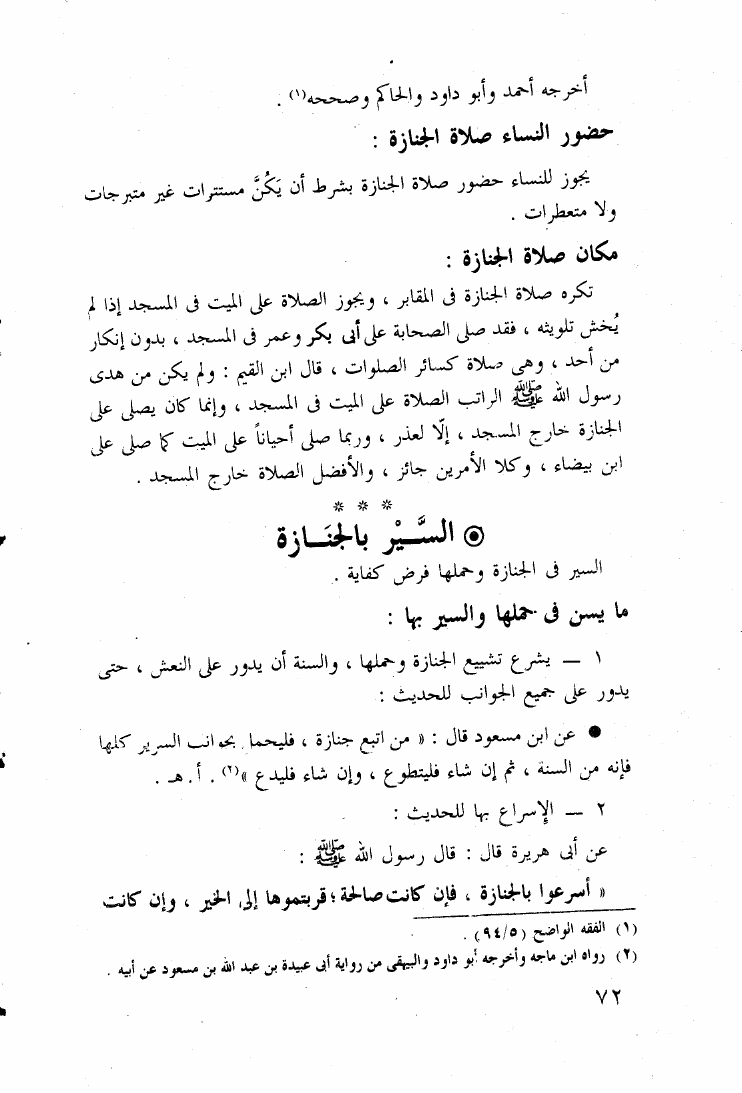 أخرجه أحمد وأبو داود والحاكم وصححه(١) .
حضور النساء صلاة الجنازة :
يجوز للنساء حضور صلاة الجنازة بشرط أن يَكُنَّ مستترات غير متبرجات
ولا متعطرات .
مكان صلاة الجنازة :
تكره صلاة الجنازة فى المقابر ، ويجوز الصلاة على الميت فى المسجد إذا لم
يُخش تلويثه ، فقد صلى الصحابة على أبى بكر وعمر فى المسجد ، بدون إنكار
من أحد ، وهى صلاة كسائر الصلوات ، قال ابن القيم : ولم يكن من هدى
رسول الله ﷺ الراتب الصلاة على الميت فى المسجد ، وإنما كان يصلى على
الجنازة خارج المسجد ، إلّا لعذر ، وربما صلى أحياناً على الميت كما صلى على
ابن بيضاء ، وكلا الأمرين جائز ، والأفضل الصلاة خارج المسجد .
* * *
◉ السَّـيْر بالجنَـازة
السير فى الجنازة وحملها فرض كفاية .
ما يسن فى حملها والسير بها :
١ — يشرع تشييع الجنازة وحملها ، والسنة أن يدور على النعش ، حتى
يدور على جميع الجوانب للحديث :
● عن ابن مسعود قال : « من اتبع جنازة ، فليحمل بجوانب السرير كلها
فإنه من السنة ، ثم إن شاء فليتطوع ، وإن شاء فليدع »(٢) . أ . هـ .
٢ — الإسراع بها للحديث :
عن أبى هريرة قال : قال رسول الله ﷺ :
« أسرعوا بالجنازة ، فإن كانت صالحة ؛ قربتموها إلى الخير ، وإن كانت
(١) الفقه الواضح (٩٤/٥) .
(٢) رواه ابن ماجه وأخرجه أبو داود والبيهقى من رواية أبى عبيدة بن عبد الله بن مسعود عن أبيه .
٧٢